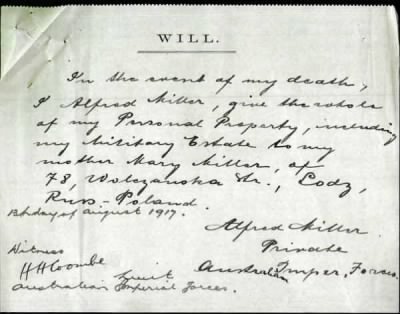 WILL.
In the event of my death,
I Alfred Miller, give the whole
of my Personal Property, including
my Military Estate to my
mother Mary Miller, of
78, Wolczanska Str., Lodz,
Russ-Poland.
day of august 1917.
Alfred Miller
Private
Witness
HHCoombe
Lieut
Australian Imper. Forces
Australian Imperial Forces.